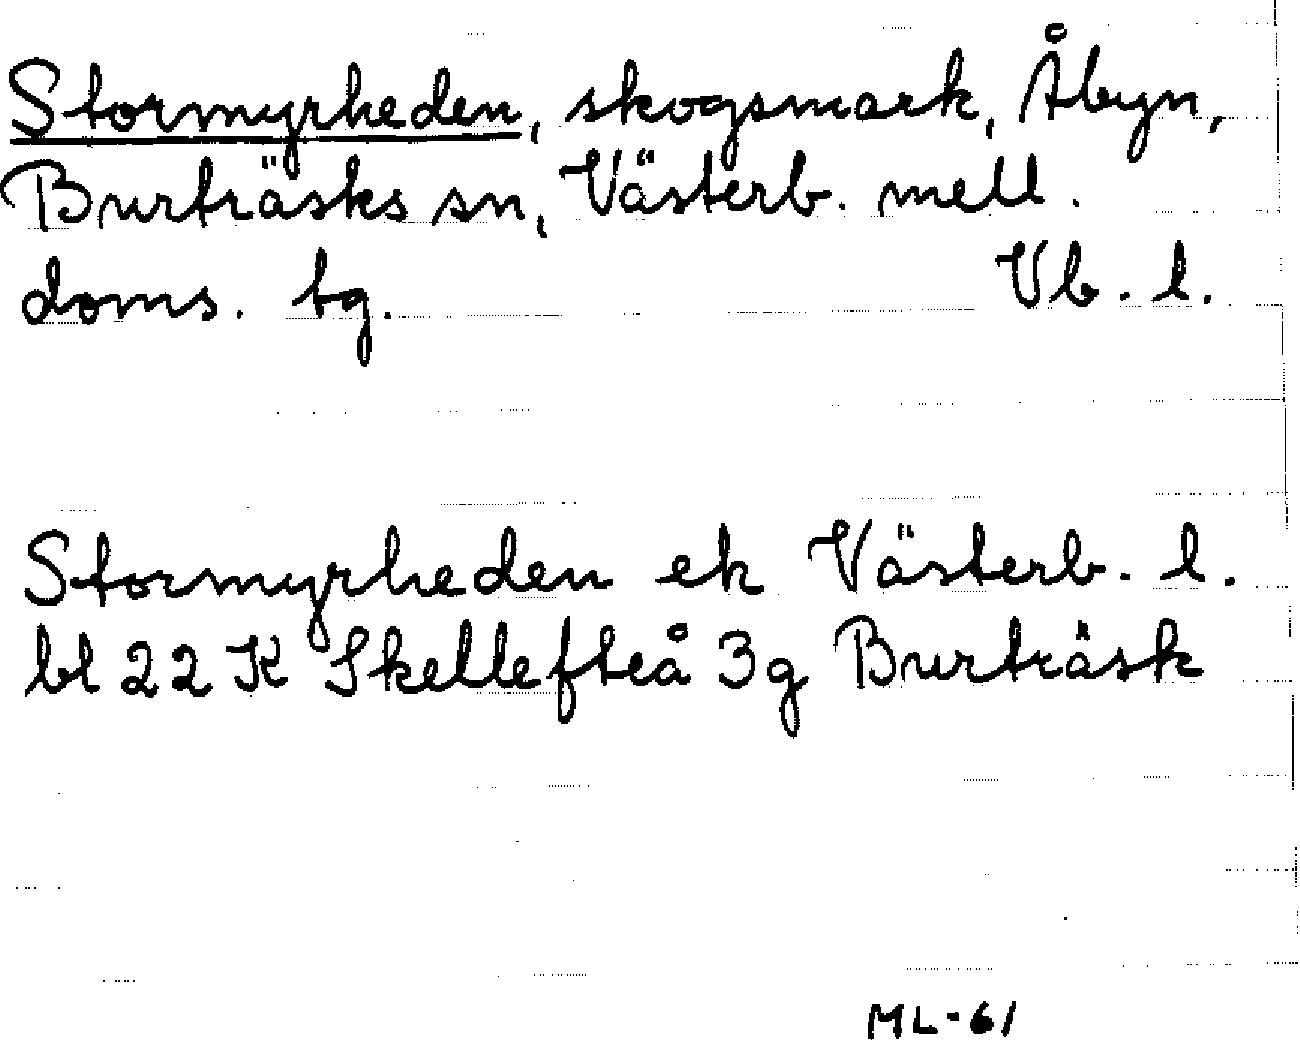 Stormyrheden, skogsmark, Åbyn,
Burträsks sn, Västerb. mell.
doms. bg. Vb. l.
Stormyrheden ek Västerb. l.
bl 22 K Skellefteå 3g Burträsk
ML-61